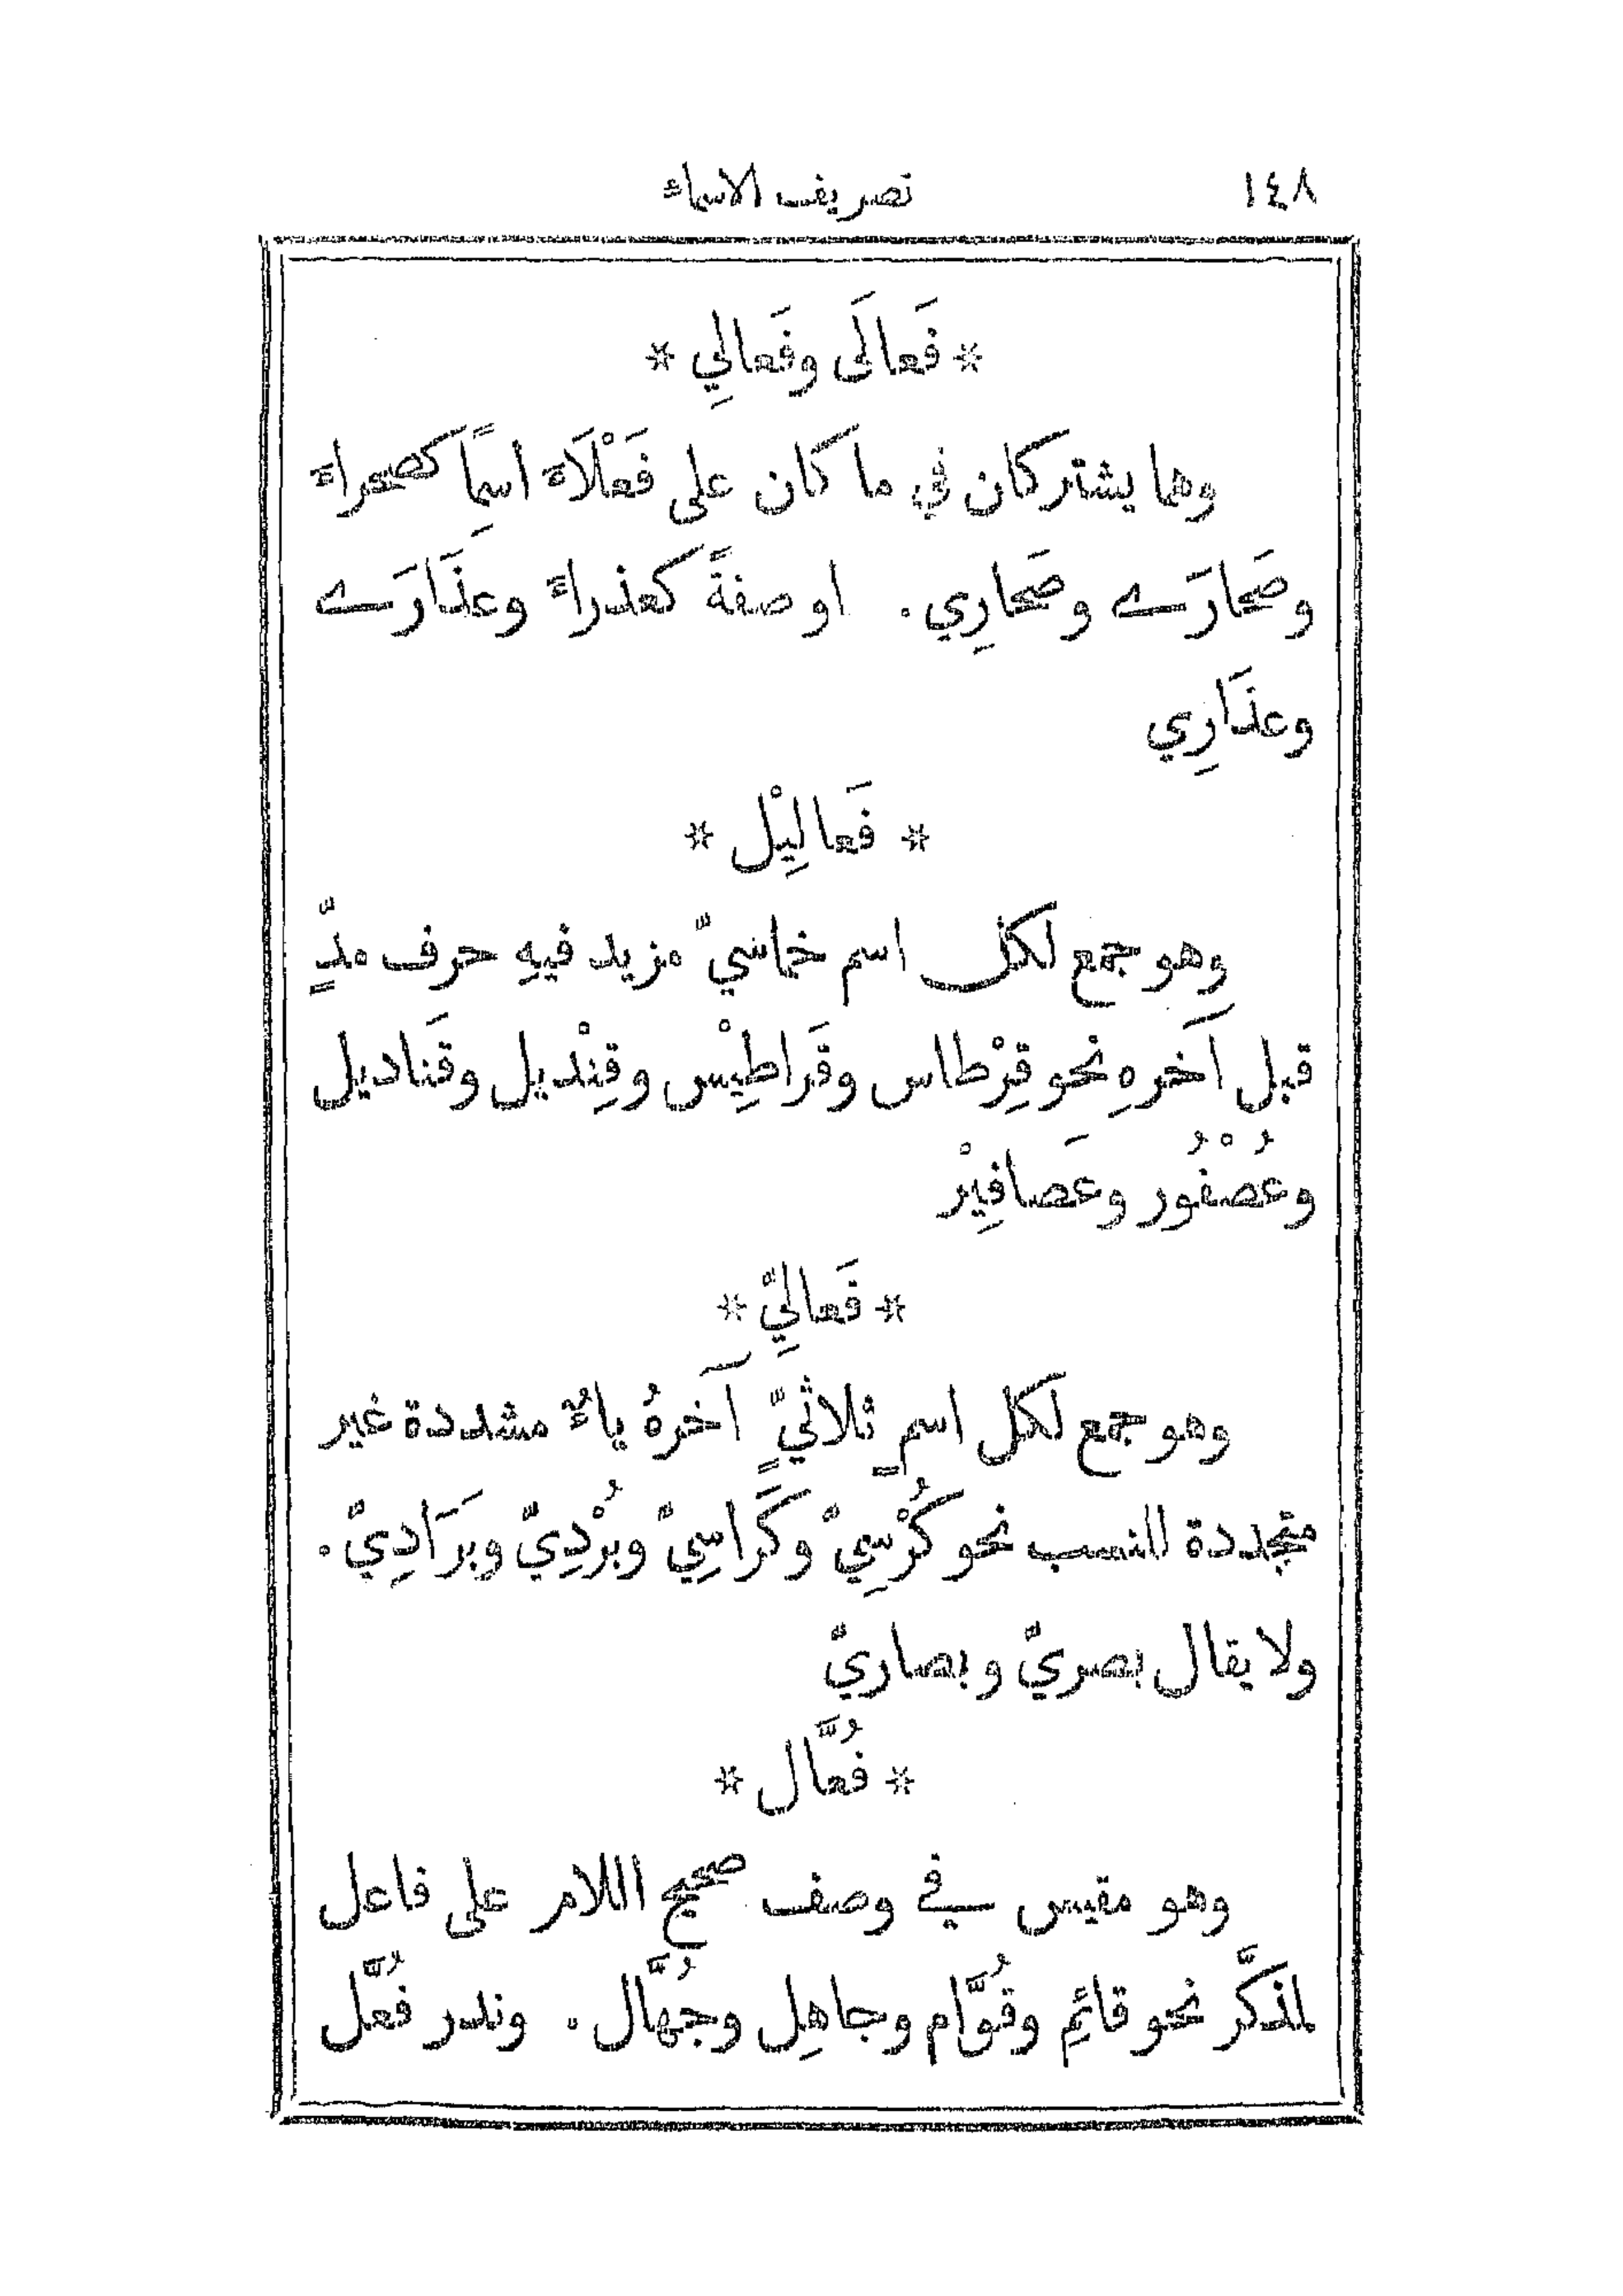 ١٤٨ تصريف الاسماء
* فَعالَى وفَعالِي *
وهما يشتركان في ما كان على فَعْلَاءَ اسِمًا كصحراءَ
وصَحارَے وصَحارِي. او صفةً كعذراءَ وعذَارَے
وعذَارِي
* فَعالِيْل *
وهو جمع لكل اسم خماسيّ مزيد فيهِ حرف مدٍّ
قبل آخرهِ نحو قِرْطاس وقَراطِيْس وقِنْديل وقَناديل
وعُصْفُور وعَصافِيْر
* فَعالِيّ *
وهو جمع لكل اسمٍ ثلاثيٍّ آخرهُ ياءٌ مشددة غير
متجددة للنسب نحو كُرْسِيّ وكَراسِيّ وبُرْدِيّ وبرَادِيّ.
ولا يقال بصريّ وبصاريّ
* فُعَّال *
وهو مقيس في وصف صحيح اللام على فاعل
لمذكَّر نحو قائِم وقُوَّام وجاهِل وجُهَّال. وندر فُعَّل